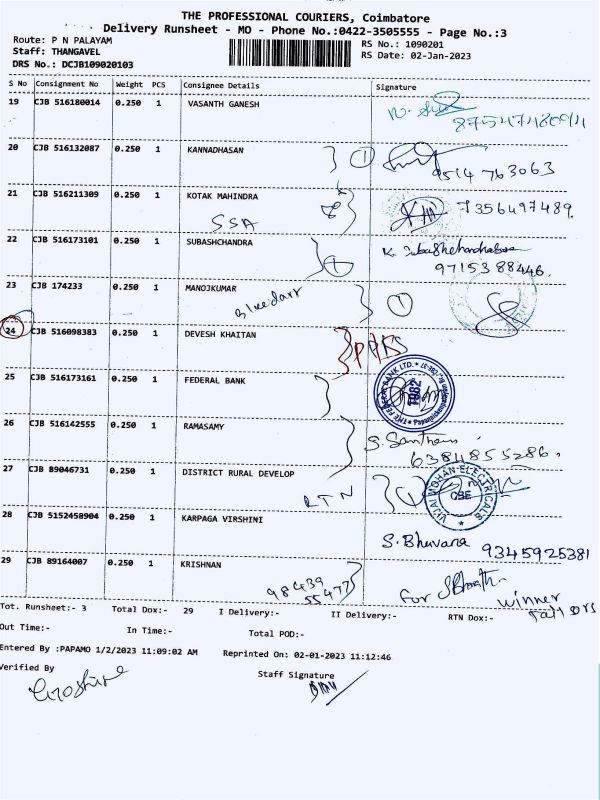 THE PROFESSIONAL COURIERS, Coimbatore
Delivery Runsheet - MO - Phone No.:0422-3505555 - Page No.:3
Route: P N PALAYAM
Staff: THANGAVEL
DRS No.: DCJB109020103
RS No.: 1090201
RS Date: 02-Jan-2023
S No Consignment No Weight PCS Consignee Details Signature
19 CJB 516180014 0.250 1 VASANTH GANESH
20 CJB 516132087 0.250 1 KANNADHASAN 1
9514 763063
21 CJB 516211309 0.250 1 KOTAK MAHINDRA
SSA 7356497489.
22 CJB 516173101 0.250 1 SUBASHCHANDRA
97153 88446.
23 CJB 174233 0.250 1 MANOJKUMAR
Bluedart 1
24 CJB 516098383 0.250 1 DEVESH KHAITAN
25 CJB 516173161 0.250 1 FEDERAL BANK
THE FEDERAL BANK LTD.
26 CJB 516142555 0.250 1 RAMASAMY
6384855286.
27 CJB 89046731 0.250 1 DISTRICT RURAL DEVELOP
RTN 1
VIJAI MOHAN ELECTRICALS
CBE
28 CJB 5152458904 0.250 1 KARPAGA VIRSHINI
S. Bhuvana 9345925381
29 CJB 89164007 0.250 1 KRISHNAN
98439
55477
For
winner
Tot. Runsheet:- 3 Total Dox:- 29 I Delivery:- II Delivery:- RTN Dox:-
Out Time:- In Time:- Total POD:-
Entered By :PAPAMO 1/2/2023 11:09:02 AM Reprinted On: 02-01-2023 11:12:46
Verified By
Staff Signature